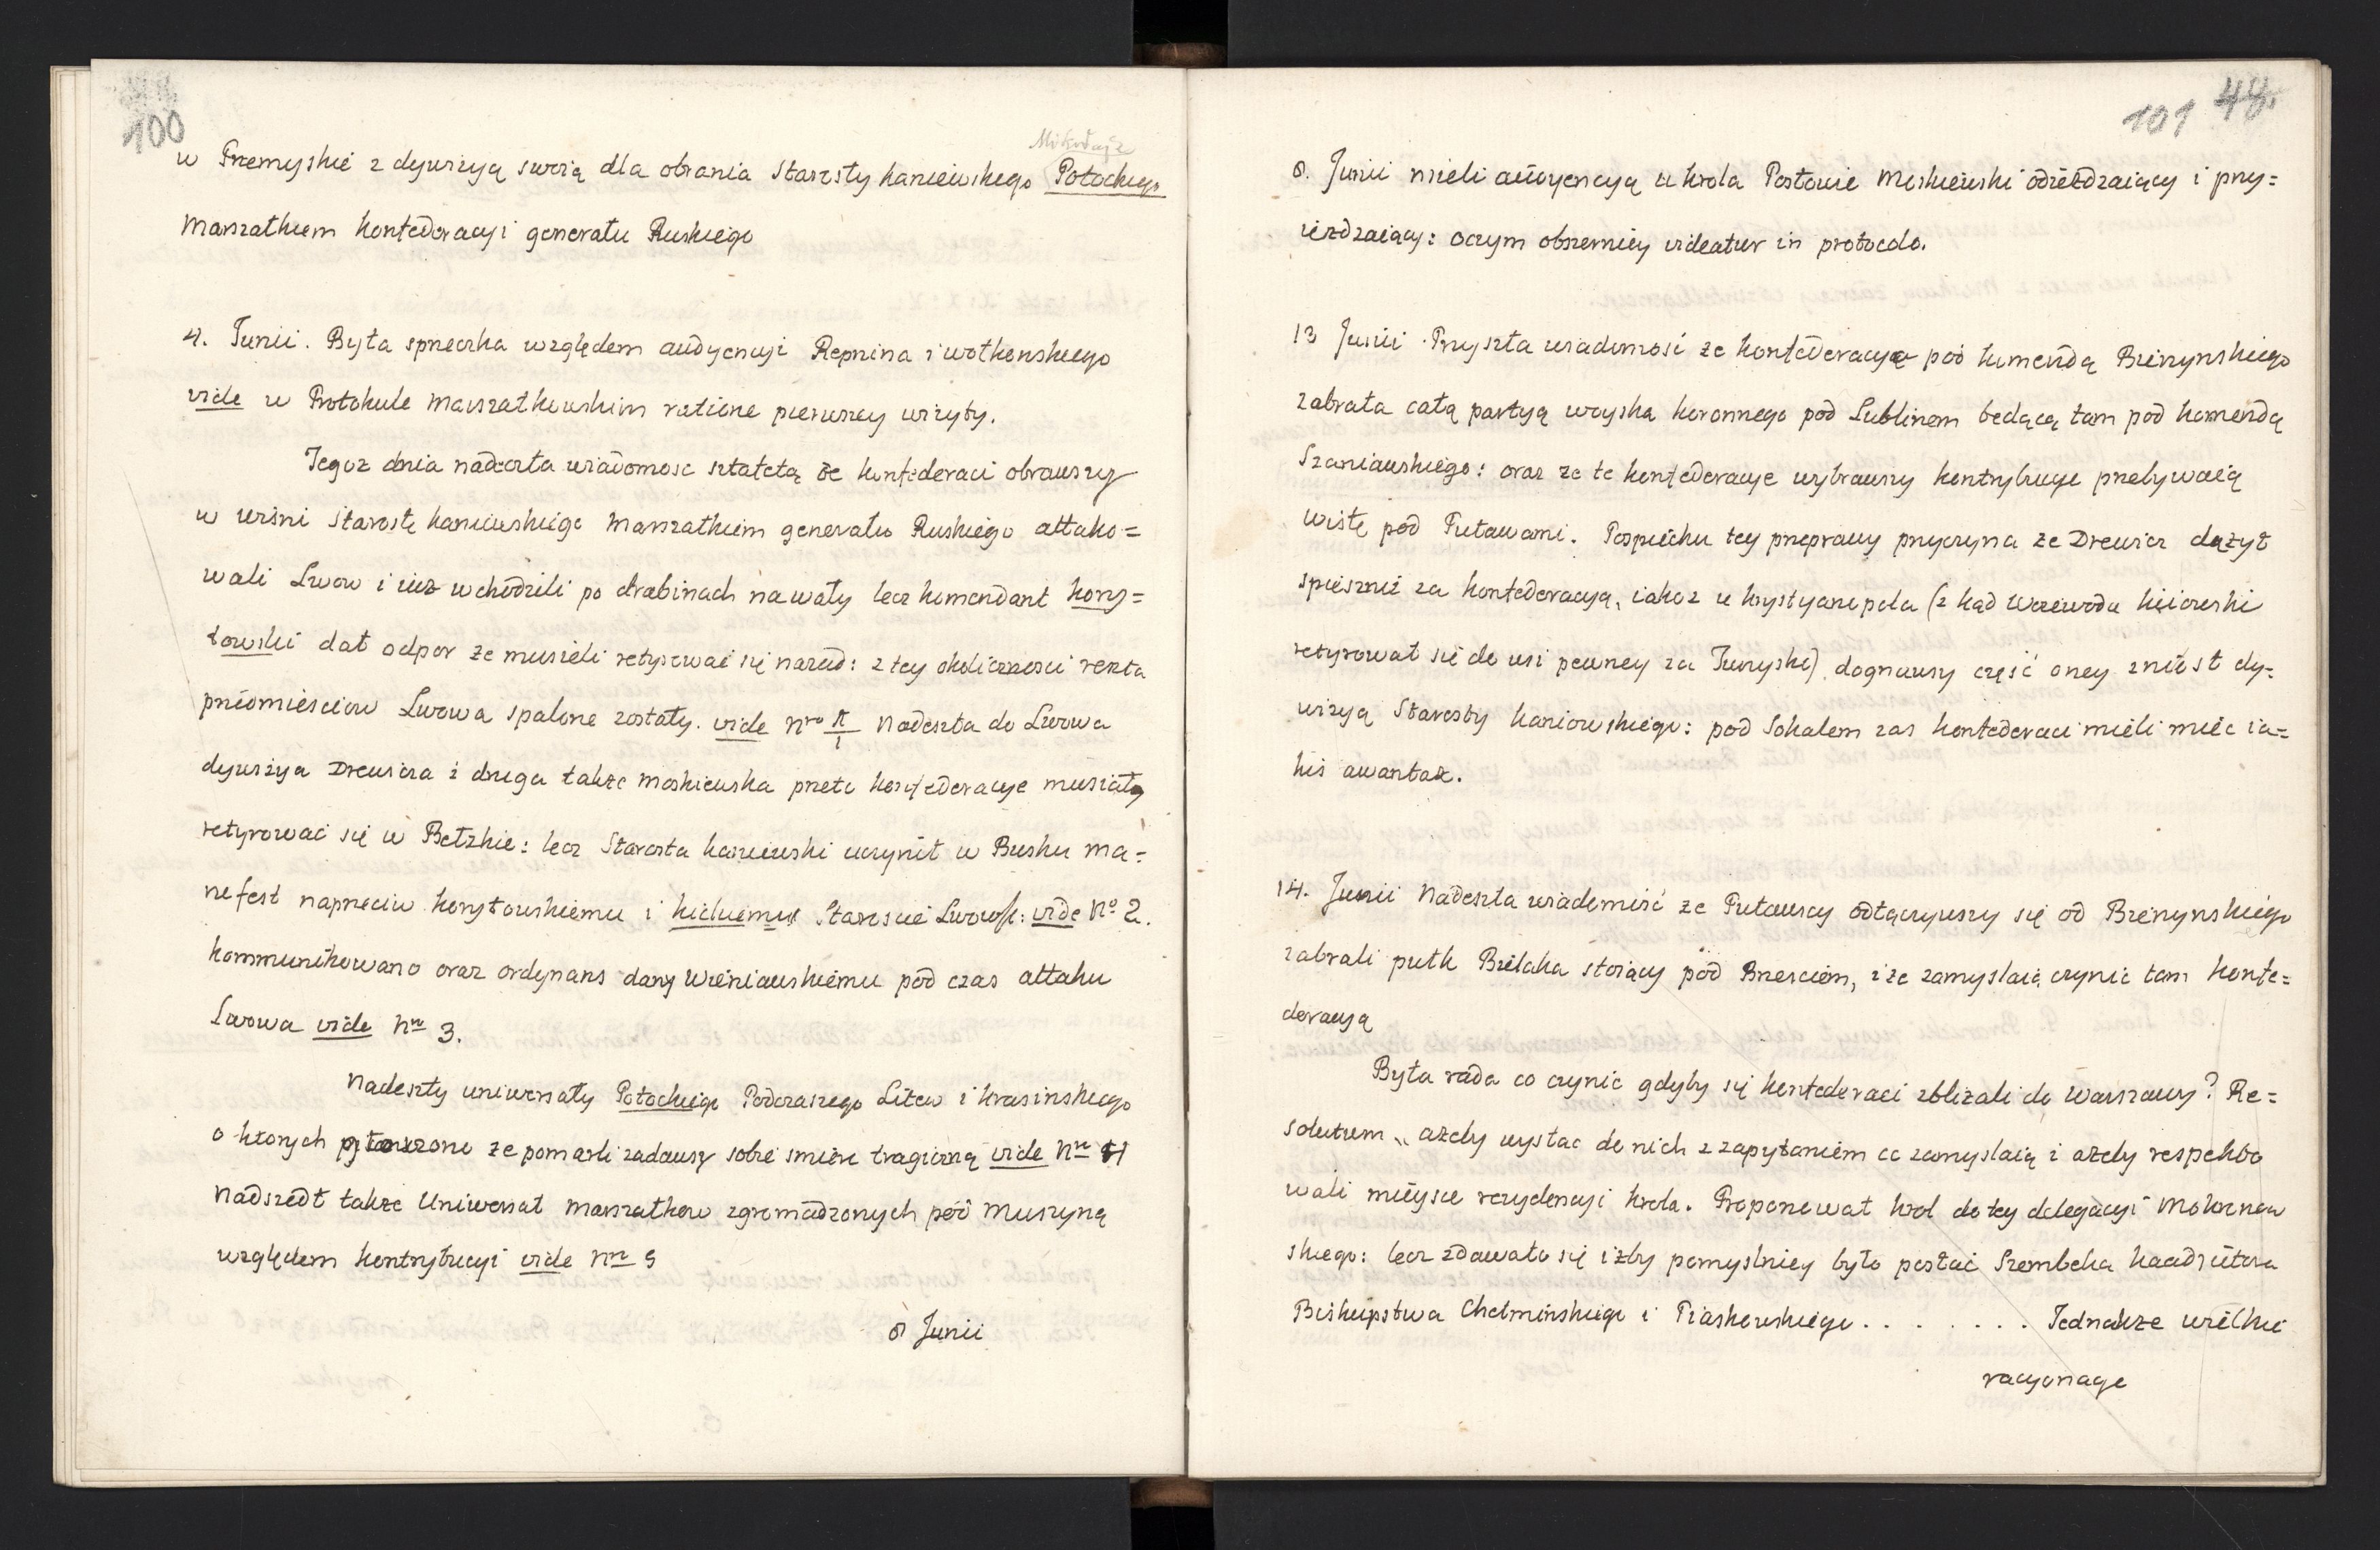 100
Mikołaja
w Przemyskie z dywizyą swoią dla obrania Starosty kaniewskiego Potockiego
Marszałkiem konfederacyi generału Ruskiego
4. Junii. Była sprzeczka względem audyencyi Repnina i wołkonskiego
vide w Protokule Marszałkowskim ratione pierwszey wizyty.
Tegoz dnia nadeszła wiadomosc sztafetą ze konfederaci obrawszy
w wisni Starostę kaniewskiego Marszałkiem generału Ruskiego attako=
wali Lwow i iuz wchodzili po drabinach na wały lecz komendant kory=
towski dał odpor ze musieli retyrowac się nazad: z tey okolicznosci reszta
przedmiesciow Lwowa spalone zostały. vide Nro 1 Nadeszła do Lwowa
dywizya Drewicza i druga takze moskiewska przeto konfederacye musiały
retyrowac się w Bełzkie: lecz Starosta kaniewski uczynił w Busku ma=
nefest naprzeciw korytowskiemu i kickiemu Staroscie Lwowsk: vide No 2.
kommunikowano oraz ordynans dany wieniawskiemu pod czas attaku
Lwowa vide Nro 3.
Nadeszły uniwersały Potockiego Podczaszego Litew i krasinskiego
o ktorych głoszono ze pomarli zadawszy sobie smierc tragiczną vide Nro 4
Nadszedł takze Uniwersał marszałkow zgromadzonych pod Muszyną
względem kontrybucyi vide Nro 5
8 Junii
101 48.
8. Junii mieli audyencyą u krola Posłowie Moskiewski odiezdzaiący i przy=
iezdzaiący: oczym obszerniey videatur in protocolo.
13 Junii. Przyszła wiadomosc ze konfederacya pod komendą Bierzynskiego
zabrała całą partyą woyska koronnego pod Lublinem będącą tam pod komendą
Szaniawskiego: oraz ze te konfederacye wybrawszy kontrybucye przebywaią
wisłę pod Puławami. Pospiechu tey przeprawy przyczyna ze Drewicz dązył
spiesznie za konfederacyą, iakoz u krystyanopola (z kąd Woiewoda kiiowski
retyrował się do wsi pewney za Turyską) dognawszy część oney zniosł dy=
wizyą Starosty kaniowskiego: pod Sokalem zas konfederaci mieli miec ia=
kis awantaz.
14. Junii Nadeszła wiadomość ze Puławscy odłączywszy się od Bierzynskiego
zabrali pułk Bielaka stoiący pod Brzesciem, i ze zamyslaią czynic tam konfe=
deracyą
Była rada co czynic gdyby się konfederaci zblizali do Warszawy? Re=
solutum „ azeby wysłac do nich z zapytaniem co zamyslaią i azeby respekto
wali mieysce rezydencyi krola. Proponował krol do tey delegacyi Mokronow
skiego: lecz zdawało się izby pomyslniey było posłać Szembeka koadiutora
Biskupstwa Chełminskiego i Piaskowskiego . . . . . . . Jednakze wielkie
racyonacye